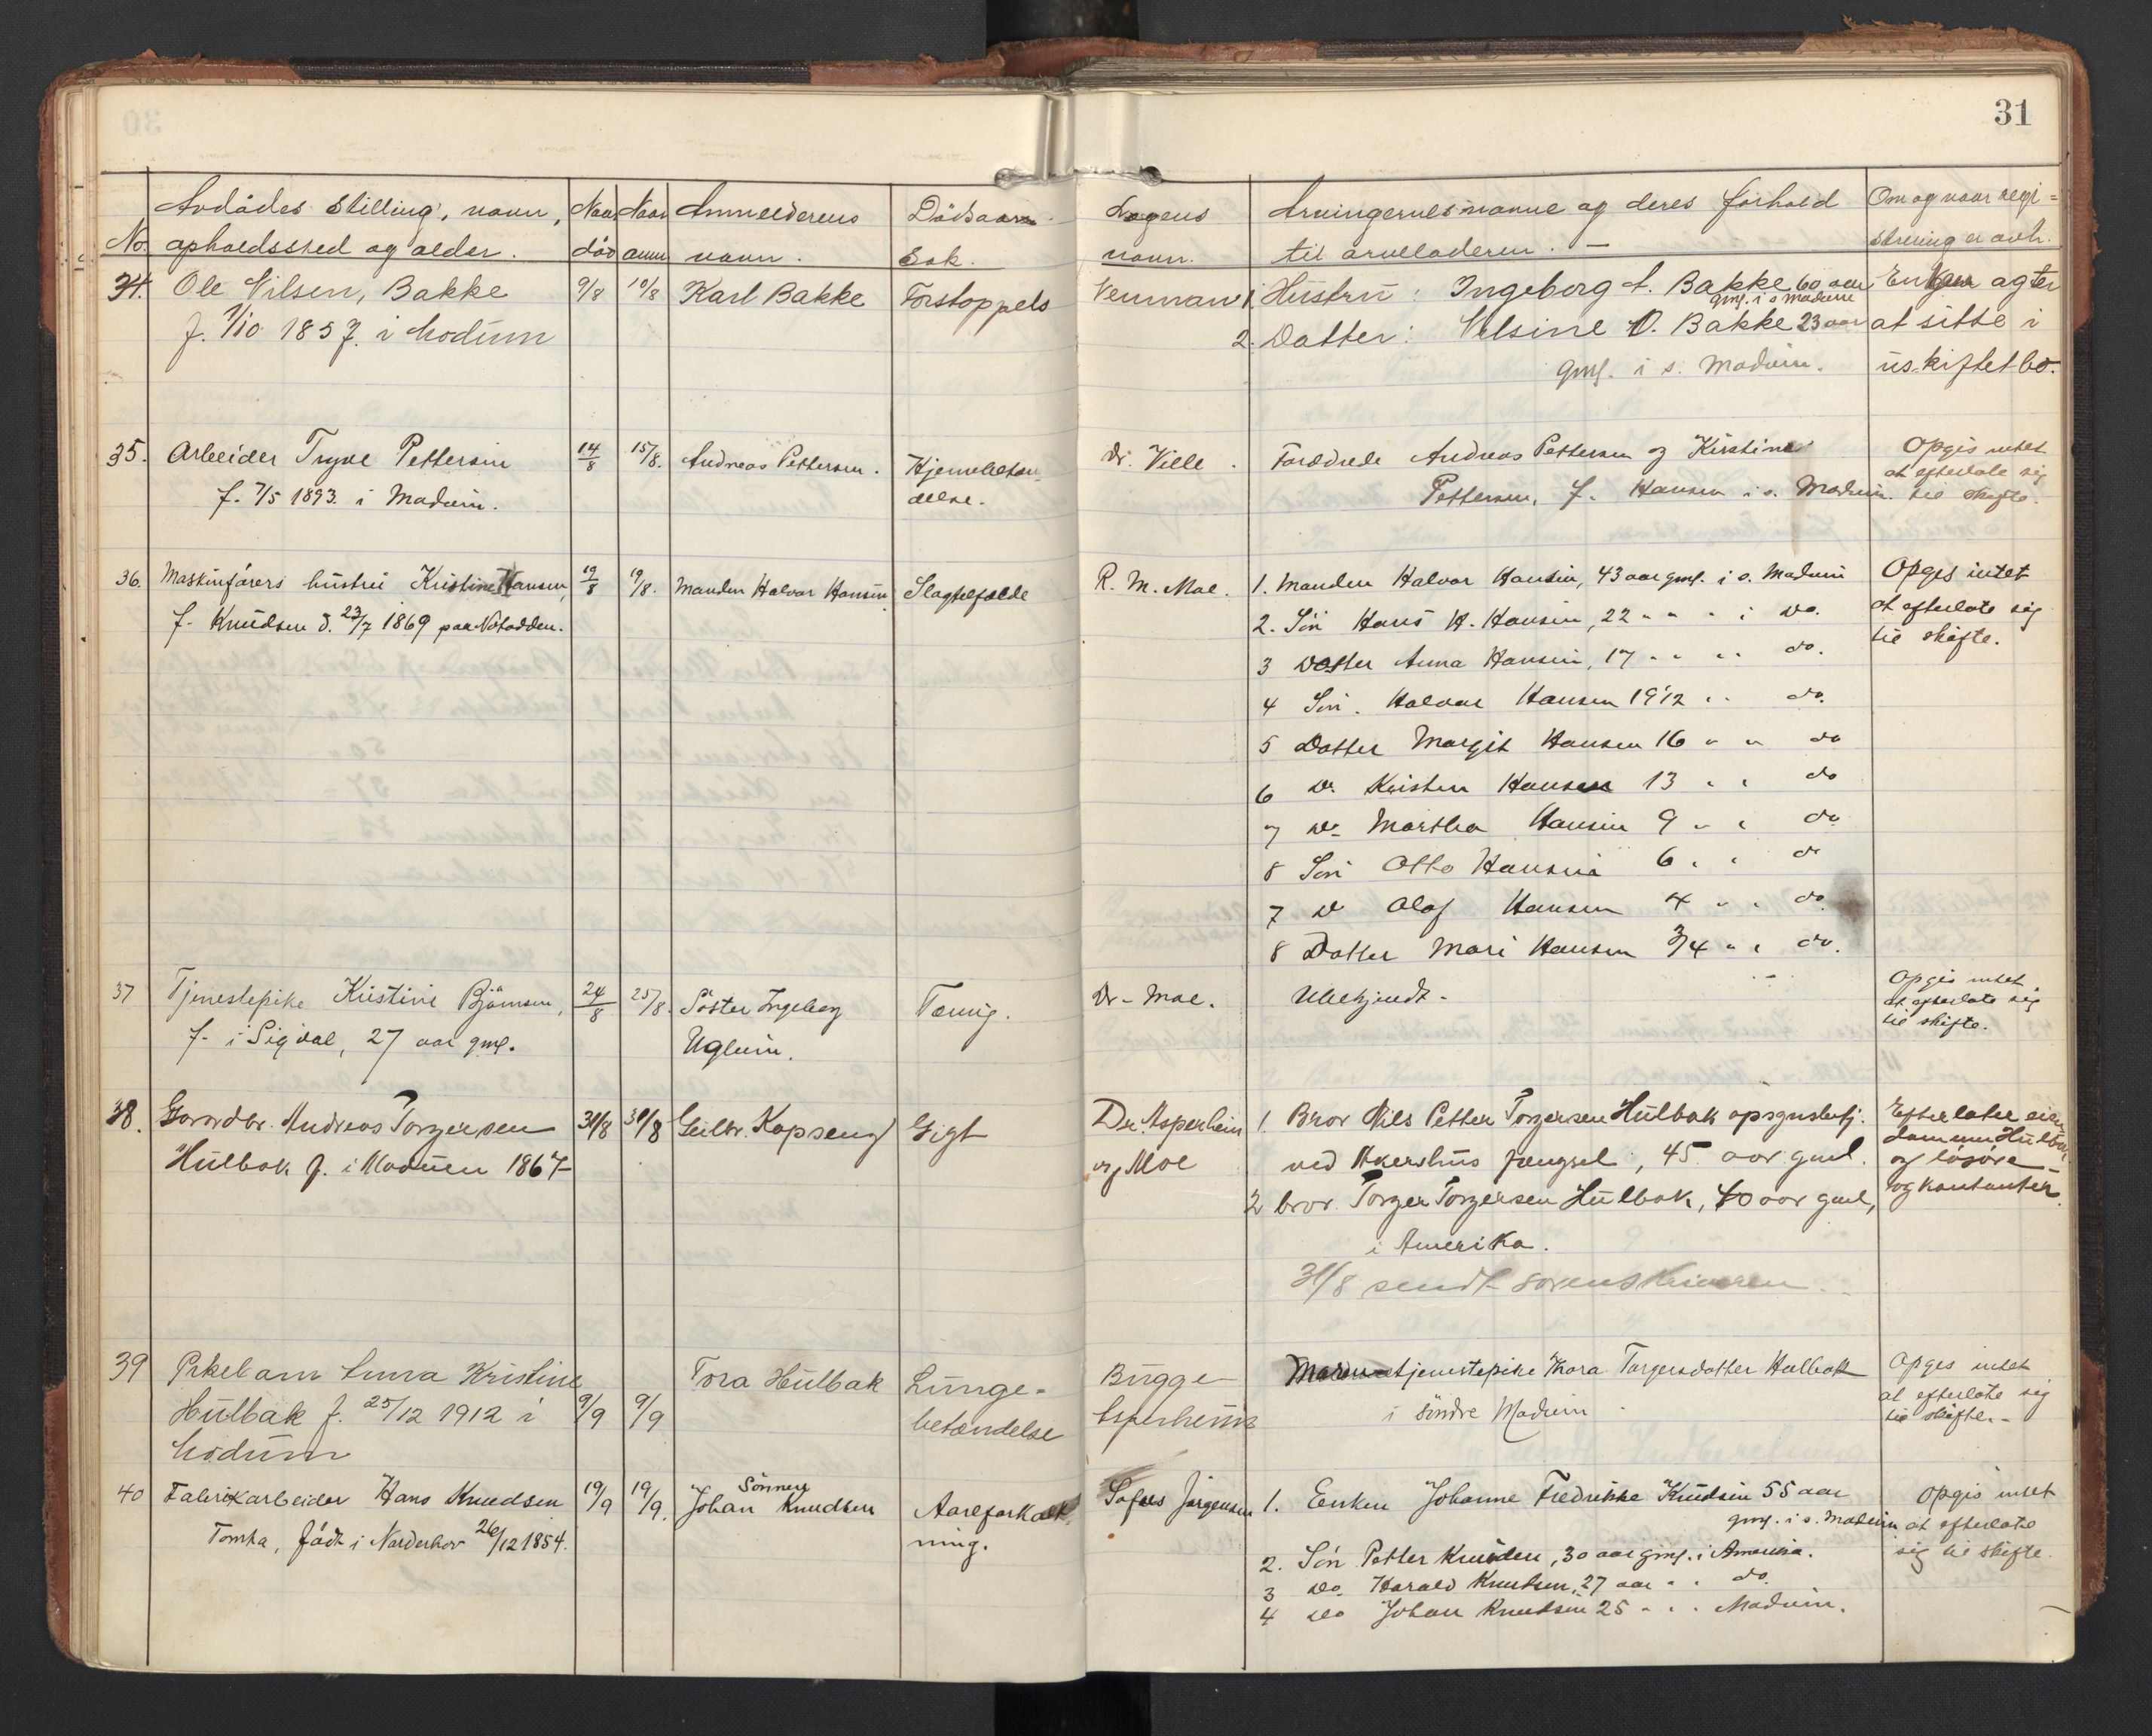 31
No. Avdødes stilling, navn, opholdssted og alder.
Naar død
Naar anm.
Anmelderens navn.
Dødsaarsak.
Lægens navn.
Arvingernes navne og deres forhold til arveladeren. —
Om og naar regi=
strering er avh.
34. Ole Nilsen, Bakke
f. 1/10 1857. i Modum
9/8
10/8
Karl Bakke
Forstoppels
Neuman
1. Hustru: Ingeborg A. Bakke 60 aar
gml. i s. Modum
2. Datter: Nilsine O. Bakke 23 aar
gml. i s. Modum.
Enken agter
at sitte i
uskiftet bo.
35. Arbeider Trygve Pettersen
f. 7/5 1893. i Modum.
14/8
15/8.
Andreas Pettersen.
Hjernebetæn-
delse.
Dr. Ville.
Forældrede Andreas Pettersen og Kirstine
Pettersen, f. Hansen i s. Modum.
Opgis intet
at efterlate sig
til skifte.
36. Maskinførers hustru Kristine Hansen,
f. Knudsen d. 23/7 1869 paa Notodden.
19/8
19/8.
Manden Halvor Hansen
Slagtilfælde
R. M. Moe.
1. Manden Halvor Hansen, 43 aar gml. i s. Modum
2. Søn Hans H. Hansen, 22 " " " i do.
3 Datter Anna Hansen, 17 " " " do.
4 Søn. Halvor Hansen 19 1/2 " " do.
5 Datter Margit Hansen 16 " " do
6 Do. Kristen Hansen 13 " " do
7 Do. Martha Hansen 9 " " do
8 Søn Otto Hansen 6 " " do
7 Do Olaf Hansen 4 " " do.
8 Datter Mari Hansen 3/4 " " do.
Opges intet
at efterlate sig
til skifte.
37 Tjenestepike Kristine Bjørnsen,
f. i Sigdal, 27 aar gml.
24/8
25/8.
Søster Ingeborg
Uglum.
Tæring.
Dr. Moe.
Ubekjendt.
Opgis intet
at efterlate sig
til skifte.
38. Gaardbr. Andreas Torgersen
Hulbak f. i Modum 1867
31/8
31/8
Geilbr. Kopseng
Gigt
Dr. Asperheim
og Moe
1. Bror Nils Petter Torgersen Hulbak opsynsbetj.
ved Akershus fængsel, 45 aar gml.
2 bror Torger Torgersen Hulbak, 40 aar gml,
i Amerika.
31/8 sendt sorenskriveren.
Efterlater eien-
dommen Hulbak
og løsøre
og kontanter.
39 Pikebarn Anna Kristine
Hulbak f. 25/12 1912 i
Modum
9/9
9/9
Tora Hulbak
Lunge-
betændelse
Bugge
Asperheim
tjenestepike Thora Torgersdatter Hulbak
i søndre Modum
Opges intet
at efterlate sig
til skifte.
40 Fabrikarbeider Hans Knudsen
Tomta, født i Norderhov 26/12 1854.
19/9
19/9.
Sønnen
Johan Knudsen
Aareforkalk-
ning.
Sofus Jørgensen
1. Enken Johanne Fredrikke Knudsen 55 aar
gml. i s. Modum
2. Søn Petter Knudsen, 30 aar gml. i Amerika.
3 Do. Harald Knudsen, 27 aar " " do.
4 do Johan Knudsen 25 " " " Modum.
Opgis intet
at efterlate
sig til skifte.